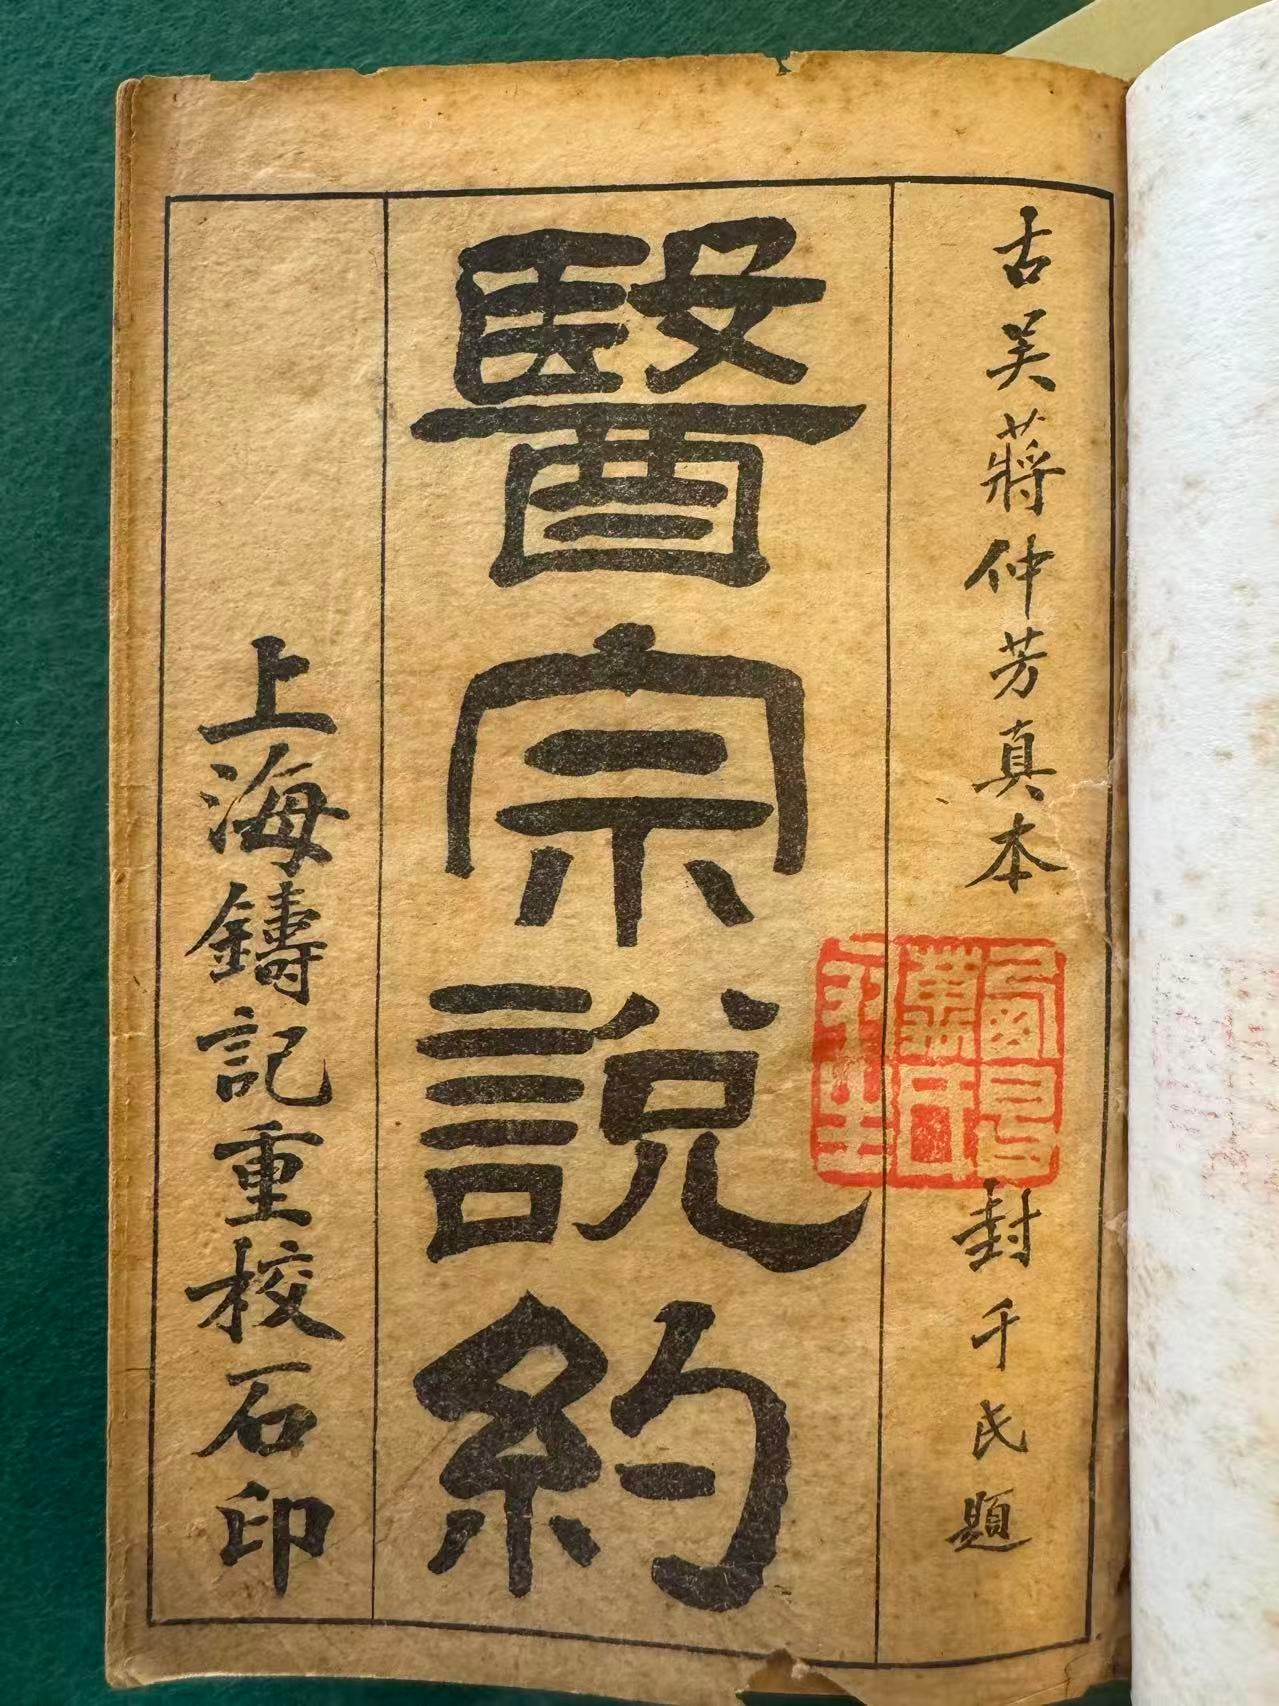 古吴蔣仲芳真本
封千民題
醫宗說約
上海鑄記重校石印